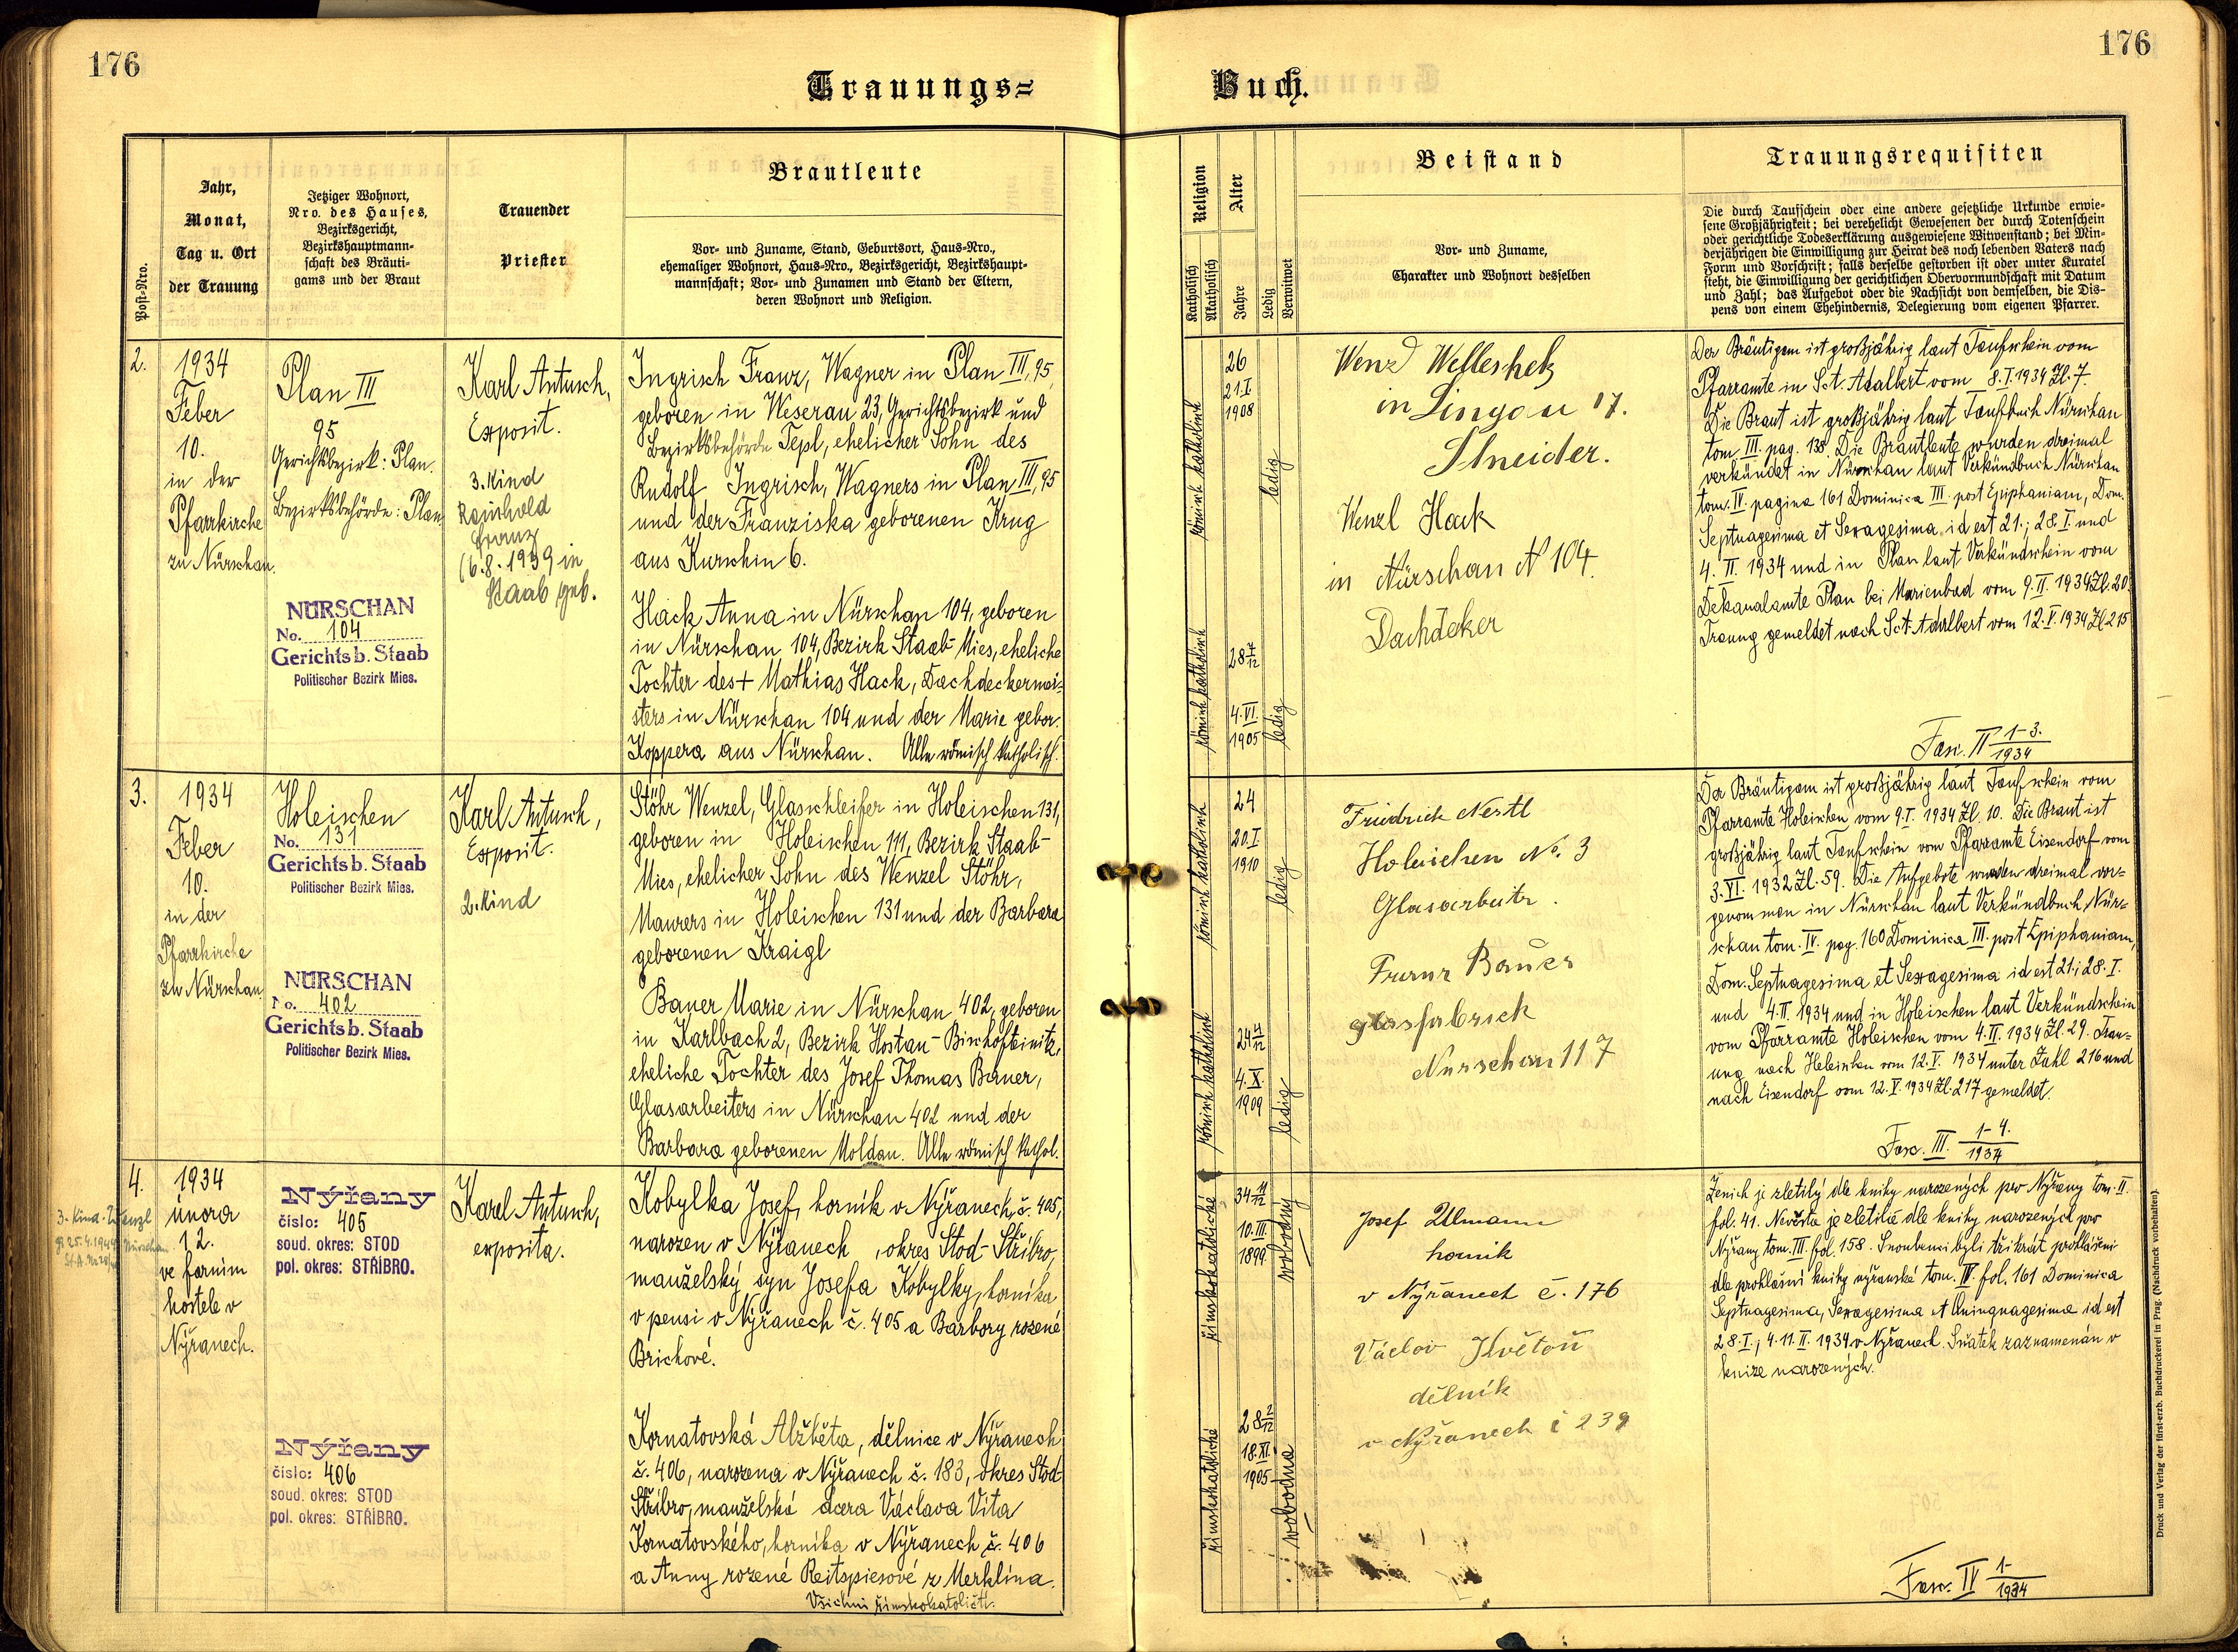 176
176
Trauungs=
Buch.
Post-Nro.
Jahr,
Monat,
Tag u. Ort
der Trauung
Jetziger Wohnort,
Nro. des Hauses,
Bezirksgericht,
Bezirkshauptmann-
schaft des Bräuti-
gams und der Braut
Trauender
Priester
Brautleute
Vor- und Zuname, Stand, Geburtsort, Haus-Nro.,
ehemaliger Wohnort, Haus-Nro., Bezirksgericht, Bezirkshaupt-
mannschaft; Vor- und Zunamen und Stand der Eltern,
deren Wohnort und Religion.
Religion
Katholisch
Akatholisch
Alter
Jahre
Ledig
Verwitwet
Beistand
Vor- und Zuname,
Charakter und Wohnort desselben
Trauungsrequisiten
Die durch Taufschein oder eine andere gesetzliche Urkunde erwie-
sene Großjährigkeit; bei verehelicht Gewesenen der durch Totenschein
oder gerichtliche Todeserklärung ausgewiesene Witwenstand; bei Min-
derjährigen die Einwilligung zur Heirat des noch lebenden Vaters nach
Form und Vorschrift; falls derselbe gestorben ist oder unter Kuratel
steht, die Einwilligung der gerichtlichen Obervormundschaft mit Datum
und Zahl; das Aufgebot oder die Nachsicht von demselben, die Dis-
pens von einem Ehehindernis, Delegierung vom eigenen Pfarrer.
2.
1934
Feber
10.
in der
Pfarrkirche
zu Nürschan.
Plan III
95
Gerichtsbezirk: Plan.
Bezirksbehörde: Plan
NÜRSCHAN
No. 104
Gerichtsb. Staab
Politischer Bezirk Mies.
Karl Antusch,
Exposit.
3. Kind
Reinhold
Franz
(6.8.1939 in
Staab geb.
Ingrisch Franz, Wagner in Plan III, 95,
geboren in Weserau 23, Gerichtsbezirk und
Bezirksbehörde Tepl, ehelicher Sohn des
Rudolf Ingrisch, Wagners in Plan III, 95
und der Franziska geborenen Krug
aus Kurschin 6.
Hack Anna in Nürschan 104, geboren
in Nürschan 104, Bezirk Staab-Mies, eheliche
Tochter des + Mathias Hack, Dachdeckermei-
sters in Nürschan 104 und der Marie gebor.
Koppera aus Nürschan. Alle römisch katholisch.
römisch katholisch
26
21.I.
1908
ledig
römisch katholisch
28 7/12
4.VI.
1905
ledig
Wenzl
in Lingau 17.
Shneider.
Wenzl Hack
in Nürschan N 104.
Dachdeker
Der Bräutigam ist großjährig laut Taufschein vom
Pfarramte in Sct. Adalbert vom 8.I.1934 Zl. 7.
Die Braut ist großjährig laut Taufbuch Nürschan
tom III. pag. 138. Die Brautleute wurden dreimal
verkündet in Nürschan laut Verkündbuch Nürschan
tom. IV. pagina 161 Dominica III. post Epiphaniam, Dom.
Septuagesima et Sexagesima id est 21.; 28.I. und
4.II. 1934 und in Plan laut Verkündschein vom
Dekanalamte Plan bei Marienbad vom 9.II.1934 Zl. 20.
Trauung gemeldet nach Sct. Adalbert vom 12.V.1934 Zl 215
Fasc. II 1-3./1934
3.
1934
Feber
10.
in der
Pfarrkirche
zu Nürschan.
Holeischen
No. 131
Gerichtsb. Staab
Politischer Bezirk Mies.
NÜRSCHAN
No. 402
Gerichtsb. Staab
Politischer Bezirk Mies.
Karl Antusch,
Exposit.
2. Kind
Stöhr Wenzel, Glasschleifer in Holeischen 131,
geboren in Holeischen 111, Bezirk Staab-
Mies, ehelicher Sohn des Wenzel Stöhr,
Maurers in Holeischen 131 und der Barbara
geborenen Kraigl
Bauer Marie in Nürschan 402, geboren
in Karlbach 2, Bezirk Hostau-Bischofteinitz,
eheliche Tochter des Josef Thomas Bauer,
Glasarbeiters in Nürschan 402 und der
Barbara geborenen Moldau. Alle römisch kathol.
römisch katholisch
24
20.I.
1910
ledig
römisch katholisch
24 4/12
4.X.
1909
ledig
Friedrich Nestl
Holeischen No. 3
Glasarbeitr.
Franz Bauer
glasfabrick
Nürschan 117
Der Bräutigam ist großjährig laut Taufschein vom
Pfarramte Holeischen vom 9.I. 1934 Zl. 10. Die Braut ist
großjährig laut Taufschein vom Pfarramte Eisendorf vom
3.VI. 1932 Zl. 59. Die Aufgebote wurden dreimal vor-
genommen in Nürschan laut Verkündbuch Nür-
schan tom. IV. pag. 160 Dominica III. post Epiphaniam,
Dom. Septuagesima et Sexagesima id est 21.; 28.I.
und 4.II. 1934 und in Holeischen laut Verkündschein
vom Pfarramte Holeischen vom 4.II.1934 Zl. 29. Trau-
ung nach Holeischen vom 12.V. 1934 unter Zahl 216 und
nach Eisendorf vom 12.V.1934 Zl. 217 gemeldet.
Fasc. III. 1-4./1934
4.
1934
února
12.
ve farním
kostele v
Nýřanech.
3. Kind
Nýřany
číslo: 405
soud. okres: STOD
pol. okres: STŘÍBRO.
Nýřany
číslo: 406
soud. okres: STOD
pol. okres: STŘÍBRO.
Karel Antusch,
exposita.
Kobylka Josef, horník v Nýřanech č. 405,
narozen v Nýřanech, okres Stod-Stříbro,
manželský syn Josefa Kobylky, horníka
v pensi v Nýřanech č. 405 a Barbory rozené
Brichové.
Kornatovská Alžběta, dělnice v Nýřanech
č. 406, narozena v Nýřanech č. 183, okres Stod
Stříbro, manželská dcera Václava Víta
Kornatovského, horníka v Nýřanech č. 406
a Anny rozené Reitspiesové z Merklína.
Všichni římskokatoličtí.
římskokatolické
34 11/12
10.III.
1899
svobodný
římskokatolické
28 2/12
18.XI.
1905
svobodná
Josef Ullmann
horník
v Nýřanech č. 176
Václav Květoň
dělník
v Nýřanech č 239
Ženich je zletilý dle knihy narozených pro Nýřany tom. II.
fol. 41. Nevěsta je zletilá dle knihy narozených pro
Nýřany tom. III. fol. 158. Snoubenci byli třikrát prohlášeni
dle prohlášní knihy nýřanské tom. IV. fol. 161 Dominica
Septuagesima, Sexagesima et Quinquagesima id est
28.I.; 4. 11.II. 1934 v Nýřanech. Sňatek zaznamenán v
knize narozených.
Fasc. IV 1-/1934
Druck und Verlag der fürst-erzb. Buchdruckerei in Prag. (Nachdruck vorbehalten).